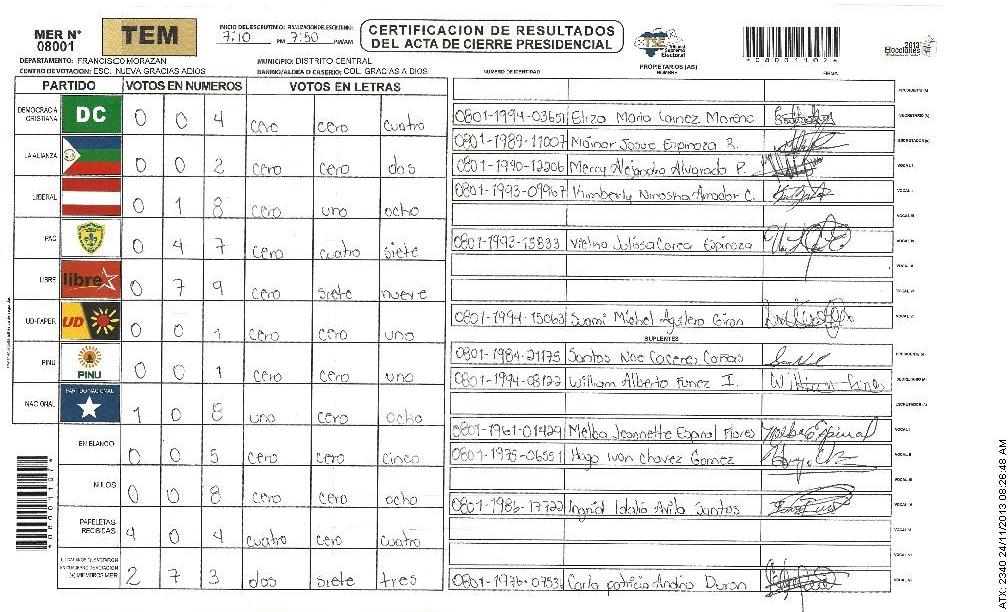 MER N° 08001
TEM
INICIO DEL ESCRUTINIO: 7:10 PM
FINALIZACION DEL ESCRUTINIO: 7:50 PM/AM
CERTIFICACION DE RESULTADOS
DEL ACTA DE CIERRE PRESIDENCIAL
TSE Tribunal Supremo Electoral
2013 Elecciones
*08001107*
DEPARTAMENTO: FRANCISCO MORAZAN
MUNICIPIO: DISTRITO CENTRAL
CENTRO DE VOTACION: ESC. NUEVA GRACIAS A DIOS
BARRIO/ALDEA O CASERIO: COL. GRACIAS A DIOS
PARTIDO VOTOS EN NUMEROS VOTOS EN LETRAS
DEMOCRACIA CRISTIANA DC 0 0 4 cero cero cuatro
LA ALIANZA 0 0 2 cero cero dos
LIBERAL 0 1 8 cero uno ocho
PAC 0 4 7 cero cuatro siete
LIBRE libre 0 7 9 cero siete nueve
UD-FAPER UD 0 0 1 cero cero uno
PINU PINU 0 0 1 cero cero uno
NACIONAL PARTIDO NACIONAL 1 0 8 uno cero ocho
EN BLANCO 0 0 5 cero cero cinco
NULOS 0 0 8 cero cero ocho
PAPELETAS RECIBIDAS 4 0 4 cuatro cero cuatro
(+) MIEMBROS MER 2 7 3 dos siete tres
NUMERO DE IDENTIDAD PROPIETARIOS (AS) NOMBRE FIRMA
PRESIDENTE (A)
0801-1994-03651 Eliza Maria Lainez Moreno SECRETARIO (A)
0801-1989-11007 Mainor Josue Espinoza R. ESCRUTADOR (A)
0801-1990-12206 Mercy Alejandra Alvarado P. VOCAL I
0801-1993-09967 Kimberly Niroska Amador C. VOCAL II
VOCAL III
0801-1993-15833 Vielka Julissa Carea Espinoza VOCAL IV
VOCAL V
VOCAL VI
0801-1994-15063 Suami Michel Aguilera Giron
SUPLENTES
0801-1984-21175 Santos Noe Caceres PRESIDENTE (A)
0801-1994-08122 William Alberto Funez I. SECRETARIO (A)
ESCRUTADOR (A)
0801-1961-01429 Melba Jeannette Espinal Flores VOCAL I
0801-1975-06551 Hugo Ivan Chavez Gomez VOCAL II
VOCAL III
0801-1986-17722 Ingrid Idalia Avila Santos
0801-1976-07536 Carla patricia Andino Duron
ATX: 2340 24/11/2013 08:26:48 AM